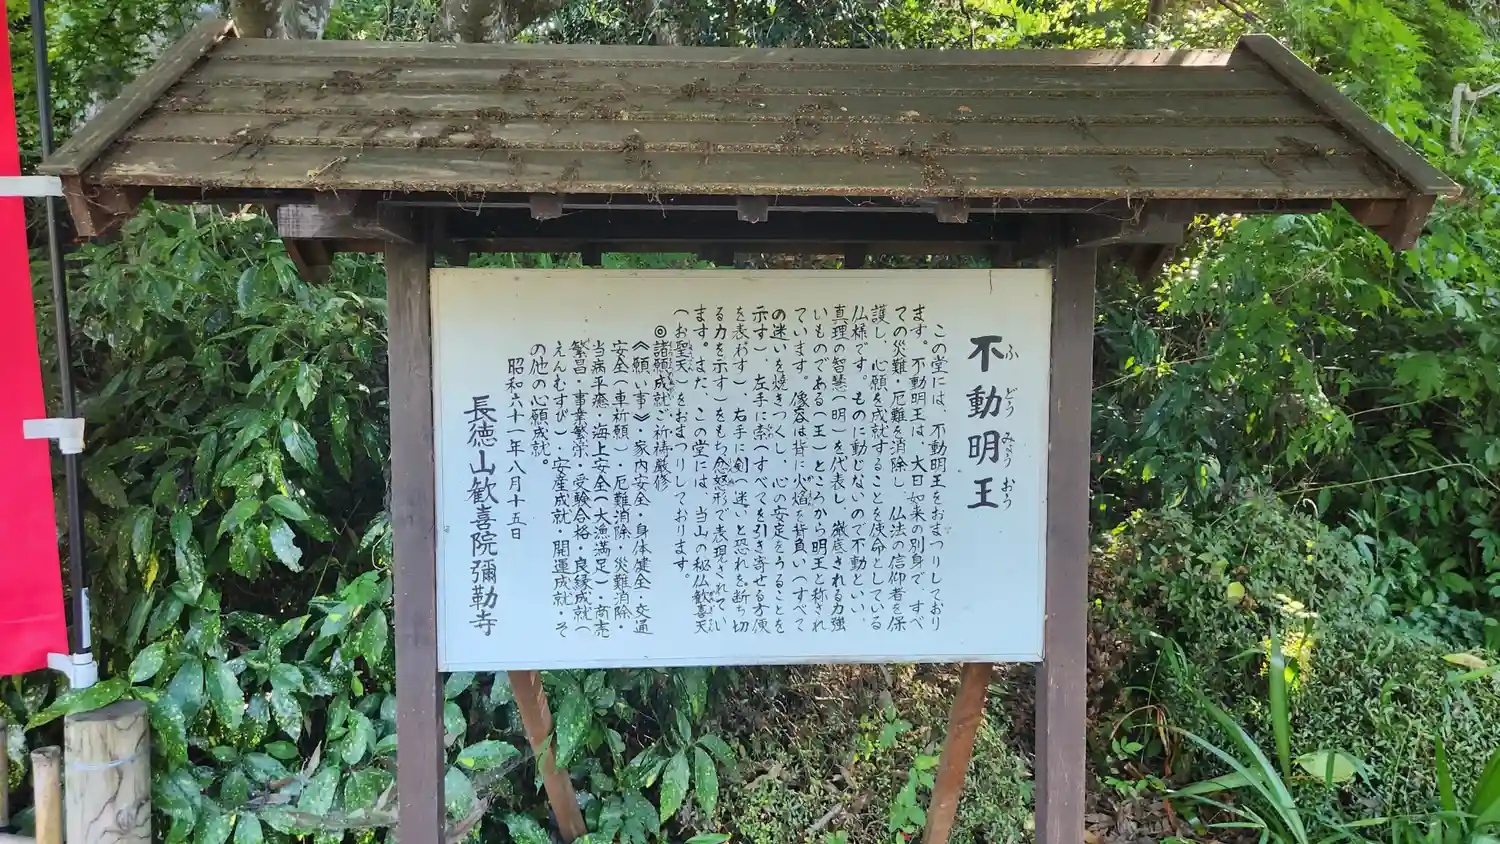 不動明王
ふどうみょうおう
この堂には、不動明王をおまつりしており
ます。不動明王は、大日如来の別身で、すべ
ての災難・厄難を消除し、仏法の信仰者を保
護し、心願を成就することを使命としている
仏様です。ものに動じないので不動といい、
真理の智慧(明)を代表し、徹底される力強
いものである(王)ところから明王と称され
ています。像容は背に火焔を背負い(すべて
の迷いを焼きつくし、心の安定をうることを
示す)、左手に索(すべてを引き寄せる方便
を表わす)、右手に剣(迷いと恐れを断ち切
る力を示す)をもち忿怒形で表現されてい
ます。また、この堂には、当山の秘仏歓喜天
(お聖天)をおまつりしております。
◎諸願成就ご祈祷厳修
《願い事》家内安全・身体健全・交通
安全(車祈願)・厄難消除・災難消除・
当病平癒・海上安全(大漁満足)・商売
繁昌・事業繁栄・受験合格・良縁成就(
えんむすび)・安産成就・開運成就・そ
の他の心願成就。
昭和六十一年八月十五日
長徳山歓喜院彌勒寺